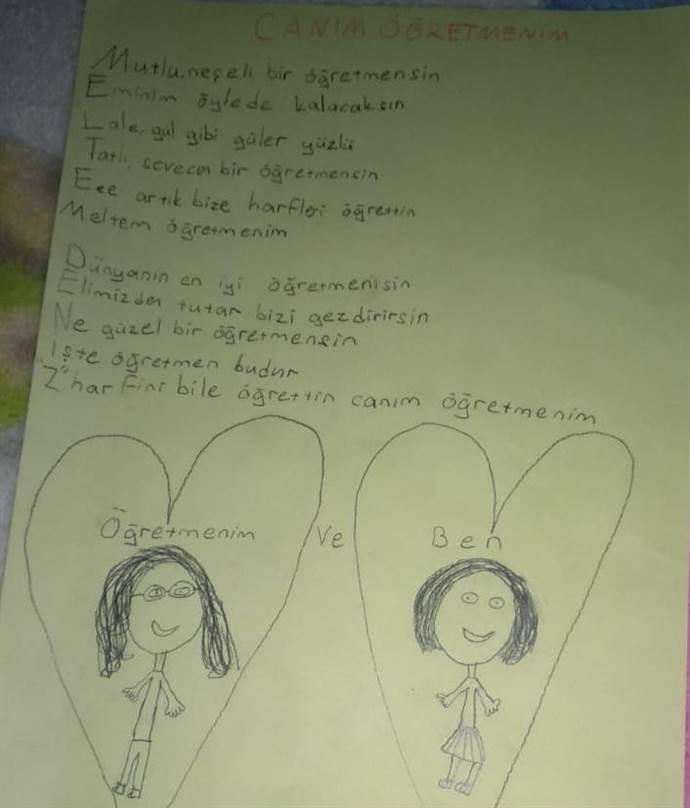 CANIM ÖĞRETMENİM
Mutlu, neşeli bir öğretmensin
Eminim öylede kalacaksın
Lale, gül gibi güler yüzlü
Tatlı, sevecen bir öğretmensin
Eee artık bize harfleri öğrettin
Meltem öğretmenim
Dünyanın en iyi öğretmenisin
Elimizden tutar bizi gezdirirsin
Ne güzel bir öğretmensin
İşte öğretmen budur
"Z" harfini bile öğrettin canım öğretmenim
Öğretmenim ve Ben